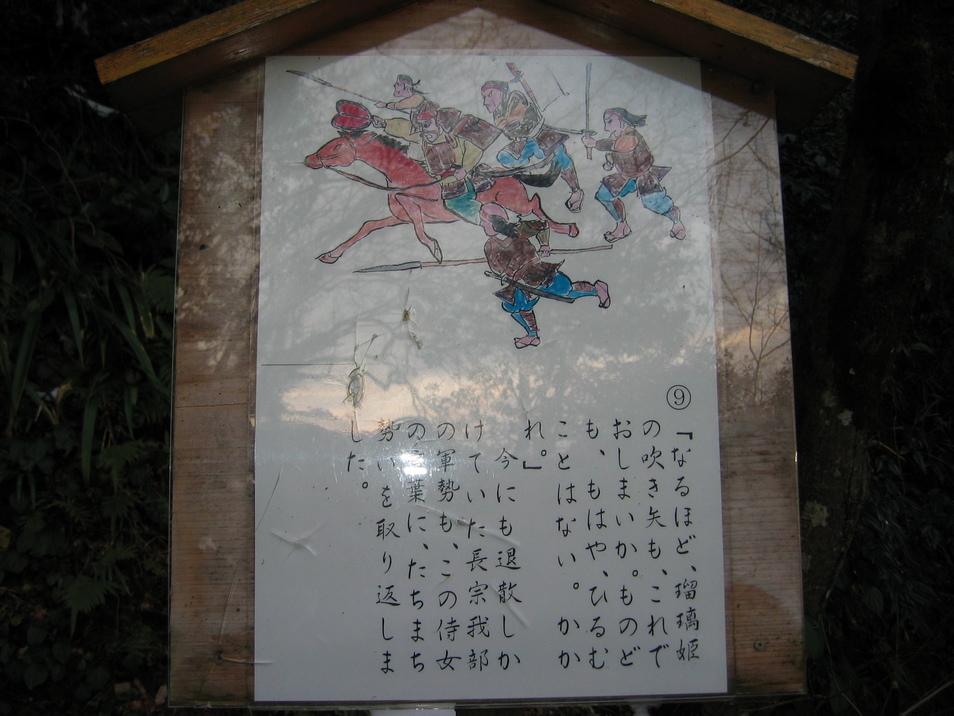 ⑨
『なるほど、瑠璃姫
の吹き矢も、これで
おしまいか。ものど
も、もはや、ひるむ
ことはない。かか
れ。』
今にも退散しか
けていた長宗我部
の軍勢も、この侍女
の言葉に、たちまち
勢いを取り返しま
した。